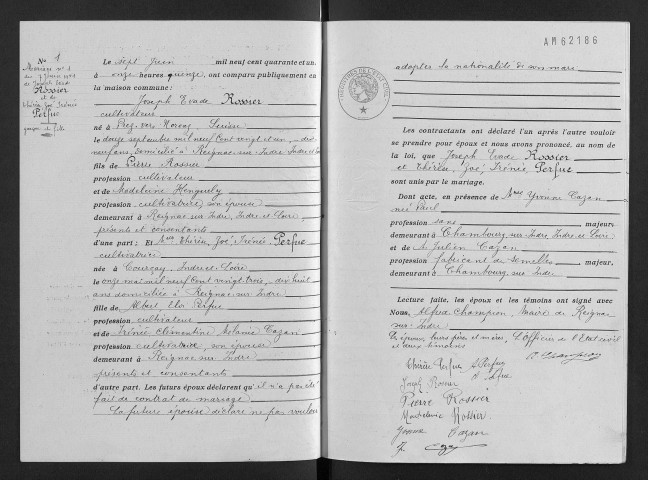 No 1
Mariage no 1
Rossier
et
Perfuc
Le sept Juin mil neuf cent quarante et un
à onze heures quinze, ont comparu publiquement en
la maison commune:
Joseph Evade Rossier
cultivateur
né à Prez-vers-Noréaz Suisse
le douze septembre mil neuf cent vingt et un, dix
neuf ans, domicilié à Reignac-sur-Indre, Indre et Loire
fils de Pierre Rossier
profession cultivateur
et de Madeleine Henguely
profession cultivatrice, son épouse
demeurant à Reignac sur Indre, Indre et Loire
présents et consentants
d'une part: Et Mlle Thérèse, Zoé, Irénée, Perfuc
cultivatrice
née à Courçay, Indre-et-Loire
le onze mai mil neuf cent vingt trois, dix huit
ans domiciliée à Reignac sur Indre
fille de Albert Perfuc
profession cultivateur
et de Irénée Clémentine Mélanie Cazan
profession cultivatrice, son épouse
demeurant à Reignac sur Indre
présents et consentants
d'autre part. Les futurs époux déclarent qu'il n'a pas été
fait de contrat de mariage
La future épouse déclare ne pas vouloir
AM62186
adopter la nationalité de son mari
Les contractants ont déclaré l'un après l'autre vouloir
se prendre pour époux et nous avons prononcé, au nom de
la loi, que Joseph Evade Rossier
et Thérèse, Zoé, Irénée, Perfuc
sont unis par le mariage.
Dont acte, en présence de Mme Yvonne Cazan
née Paul
profession sans majeur,
demeurant à Chambourg sur Indre, Indre et Loire
et de Julien Cazan
profession fabricant de semelles, majeur,
demeurant à Chambourg sur Indre
Lecture faite, les époux et les témoins ont signé avec
Nous, Alfred Champion, Maire de Reignac
sur-Indre
Les époux, leurs père et mères, L'Officier de l'Etat civil
et deux témoins
Thérèse Perfuc A Perfuc
Joseph Rossier
Pierre Rossier
Madeleine Rossier
Yvonne Cazan